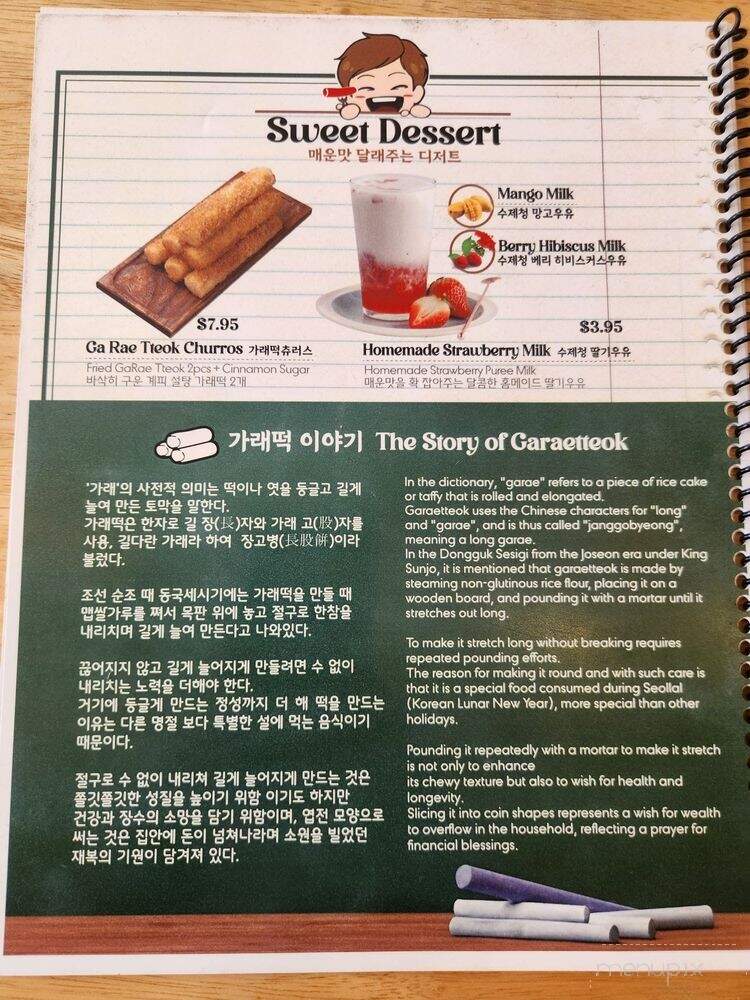 Sweet Dessert
매운맛 달래주는 디저트
Mango Milk
수제청 망고우유
Berry Hibiscus Milk
수제청 베리 히비스커스우유
$7.95
Ga Rae Tteok Churros 가래떡츄러스
Fried GaRae Tteok 2pcs + Cinnamon Sugar
바삭히 구운 계피 설탕 가래떡 2개
$3.95
Homemade Strawberry Milk 수제청 딸기우유
Homemade Strawberry Puree Milk
매운맛을 확 잡아주는 달콤한 홈메이드 딸기우유
가래떡 이야기 The Story of Garaetteok
'가래'의 사전적 의미는 떡이나 엿을 둥글고 길게
늘여 만든 토막을 말한다.
가래떡은 한자로 길 장(長)자와 가래 고(股)자를
사용, 길다란 가래라 하여 장고병(長股餠)이라
불렀다.
조선 순조 때 동국세시기에는 가래떡을 만들 때
맵쌀가루를 쪄서 목판 위에 놓고 절구로 한참을
내리치며 길게 늘여 만든다고 나와있다.
끊어지지 않고 길게 늘어지게 만들려면 수 없이
내리치는 노력을 더해야 한다.
거기에 둥글게 만드는 정성까지 더 해 떡을 만드는
이유는 다른 명절 보다 특별한 설에 먹는 음식이기
때문이다.
절구로 수 없이 내리쳐 길게 늘어지게 만드는 것은
쫄깃쫄깃한 성질을 높이기 위함 이기도 하지만
건강과 장수의 소망을 담기 위함이며, 엽전 모양으로
써는 것은 집안에 돈이 넘쳐나라며 소원을 빌었던
재복의 기원이 담겨져 있다.
In the dictionary, "garae" refers to a piece of rice cake
or taffy that is rolled and elongated.
Garaetteok uses the Chinese characters for "long"
and "garae", and is thus called "janggobyeong",
meaning a long garae.
In the Dongguk Sesigi from the Joseon era under King
Sunjo, it is mentioned that garaetteok is made by
steaming non-glutinous rice flour, placing it on a
wooden board, and pounding it with a mortar until it
stretches out long.
To make it stretch long without breaking requires
repeated pounding efforts.
The reason for making it round and with such care is
that it is a special food consumed during Seollal
(Korean Lunar New Year), more special than other
holidays.
Pounding it repeatedly with a mortar to make it stretch
is not only to enhance
its chewy texture but also to wish for health and
longevity.
Slicing it into coin shapes represents a wish for wealth
to overflow in the household, reflecting a prayer for
financial blessings.
menupix